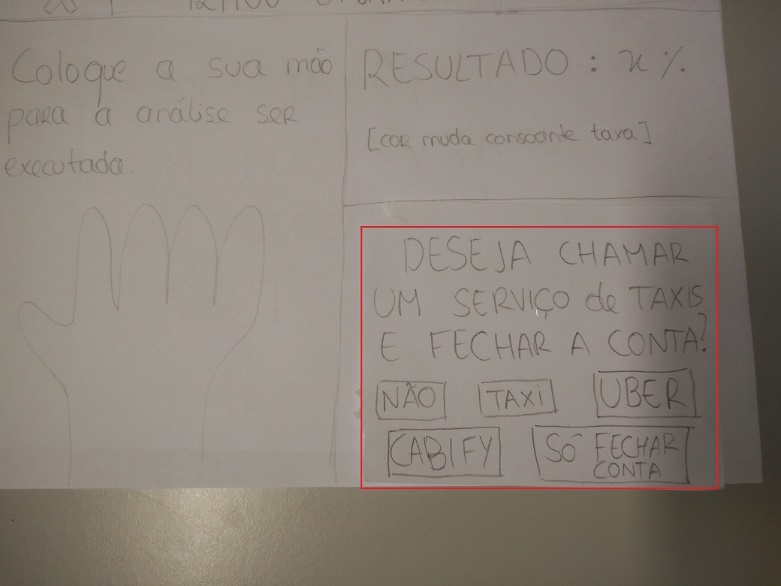 Coloque a sua mão
para a análise ser
executada.
RESULTADO : x %
[cor muda consoante taxa]
DESEJA CHAMAR
UM SERVIÇO de TAXIS
E FECHAR A CONTA?
NÃO
TAXI
UBER
CABIFY
SÓ FECHAR
CONTA